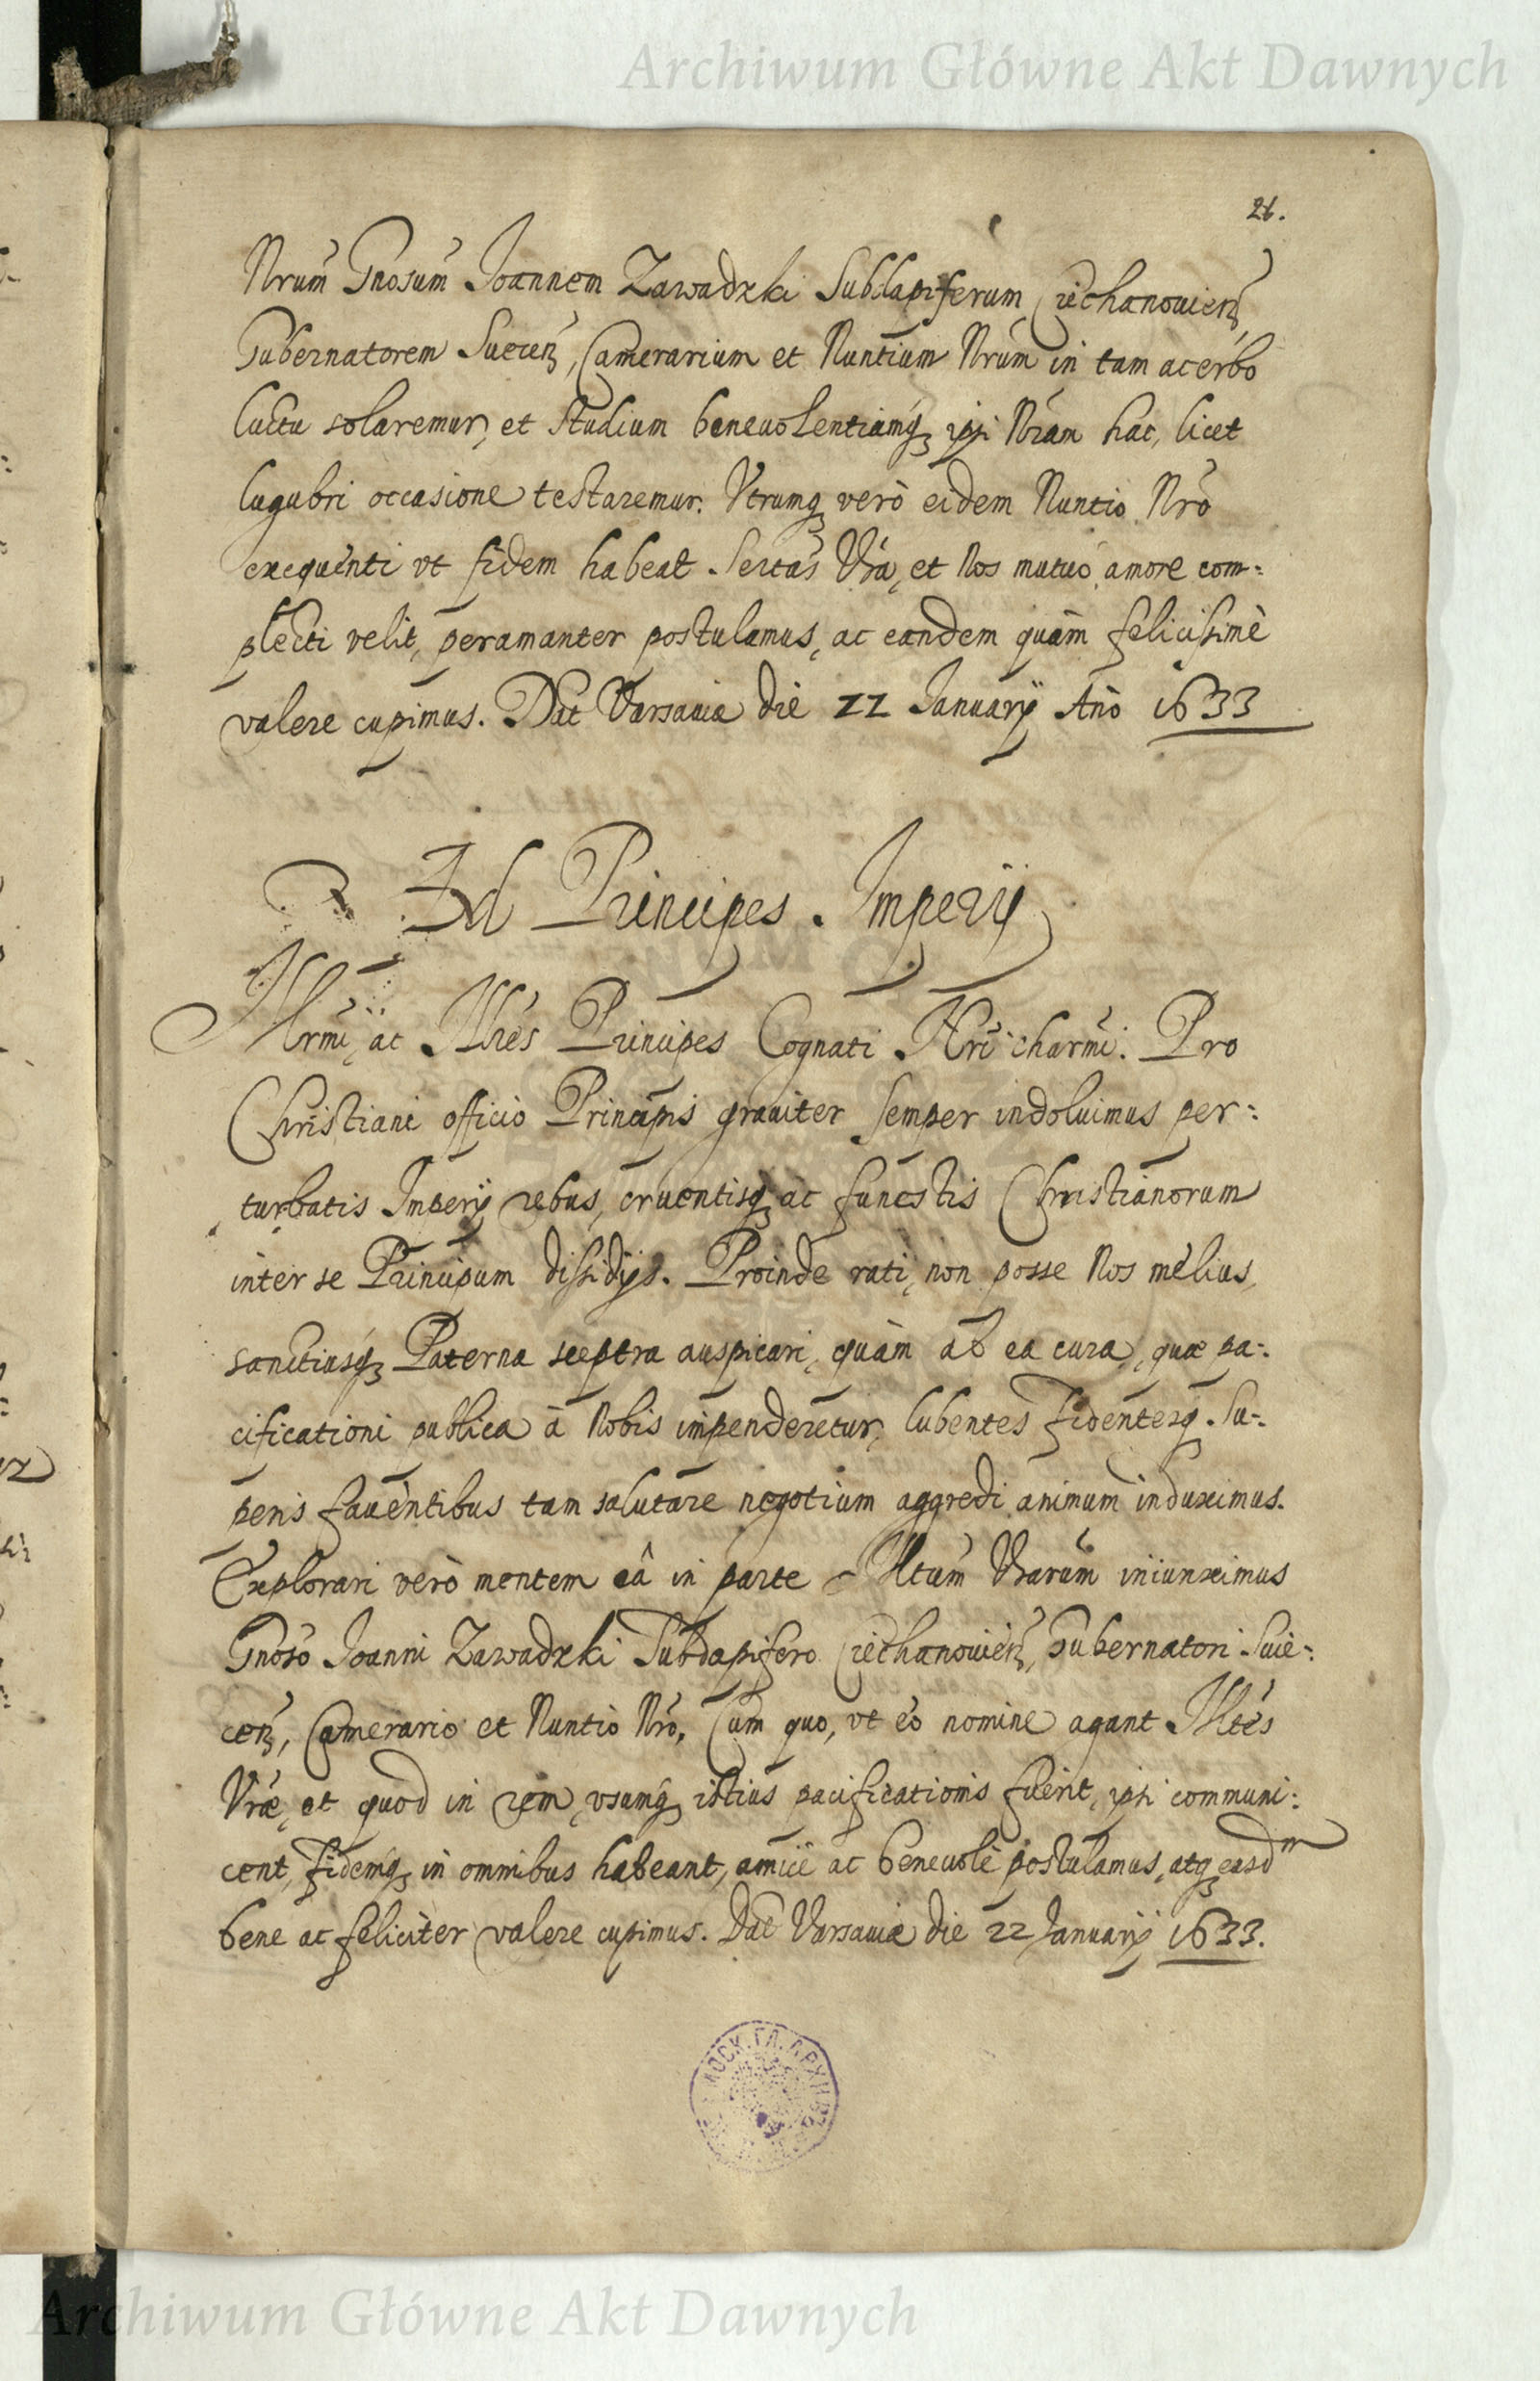 Archiwum Główne Akt Dawnych
26.
Nrum Gnosum Joannem Zawadzki Subdapiferum Ciechanovien
Gubernatorem Suecen, Camerarium et Nuntium Nrum in tam acerbo
luctu solaremur, et studium beneuolentiamq ipsi Nram hac, licet
lugubri occasione testaremur. Vtrumq verò eidem Nuntio Nro
exequenti vt fidem habeat Sertas Vra, et Nos mutuo amore com:
plecti velit, peramanter postulamus, ac eandem quàm felicissimè
valere cupimus. Dat Varsauiæ die 22 Januarij Año 1633
Ad Principes Imperij
Illrmi, ac Illres Principes Cognati Nri charmi. Pro
Christiani officio Principis grauiter semper indoluimus per:
turbatis Imperij rebus, cruentisq ac funestis Christianorum
inter se Principum dissidijs. Proinde rati, non posse Nos melius,
sanctiusq Paterna sceptra auspicari, quàm ab ea cura, quæ pa:
cificationi publicæ à Nobis impenderetur, lubentes fidentesq Su:
peris fauentibus tam salutare negotium aggredi animum induximus.
Explorari verò mentem eâ in parte Illtum Vrarum iniunximus
Gnoso Joanni Zawadzki Subdapifero Ciechanovien, Gubernatori Suie:
cen, Camerario et Nuntio Nro. Cum quo, vt eo nomine agant Illtes
Vræ, et quod in rem, vsumq istius pacificationis fuerit, ipsi communi:
cent, fidemq in omnibus habeant, amicè ac beneuolè postulamus, atq easdm
bene ac feliciter valere cupimus. Dat Varsauiæ die 22 Januarij 1633.
МОСК. ГЛ. АРХИВ
Archiwum Główne Akt Dawnych